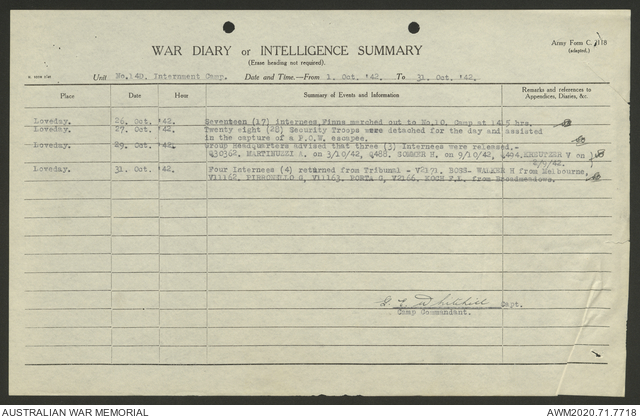 Army Form C. 2118
(adapted.)
WAR DIARY or INTELLIGENCE SUMMARY
(Erase heading not required).
Unit No.14D. Internment Camp. Date and Time.—From 1. Oct. '42. To 31. Oct. '42.
Place Date Hour Summary of Events and Information Remarks and references to Appendices, Diaries, &c.
Loveday. 26. Oct. '42. Seventeen (17) internees, Finns marched out to No.10. Camp at 1415 hrs.
Loveday. 27. Oct. '42. Twenty eight (28) Security Troops were detached for the day and assisted
in the capture of a P.O.W. escapee.
Loveday. 29. Oct. '42. Group Headquarters advised that three (3) Internees were released.-
Q30362, MARTINUZZI A. on 3/10/42, Q488, SOMMER H. on 9/10/42, Q494, KREUTZER V on
2/9/42.
Loveday. 31. Oct. '42. Four Internees (4) returned from Tribunal - V2171, BOSS- WALKER H from Melbourne,
V11162, PIBRONILLO G, V11163, PORTA G, V2166, KOCH F.E, from Broadmeadows.
Capt.
Camp Commandant.
AUSTRALIAN WAR MEMORIAL
AWM2020.71.7718